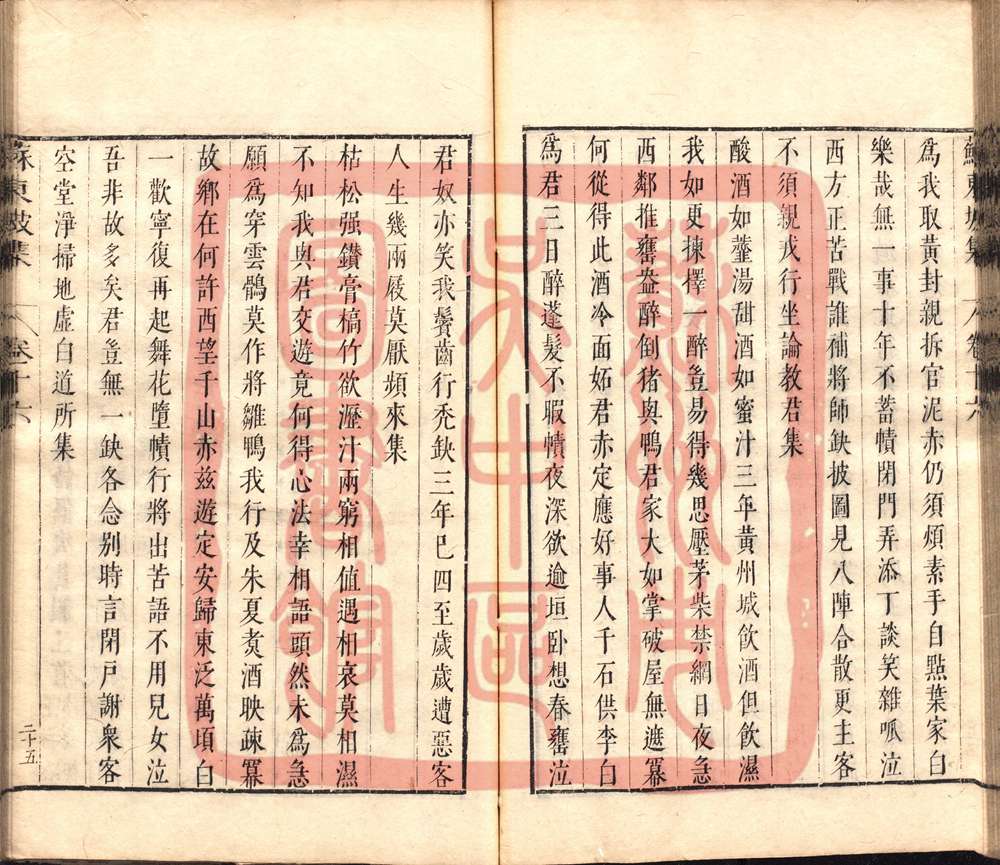 蘇東坡集 卷十六
為我取黃封親拆官泥赤仍須煩素手自點葉家白
樂哉無一事十年不蓄幘閉門弄添丁談笑雜呱泣
西方正苦戰誰補將帥缺披圖見八陣合散更主客
不須親戎行坐論教君集
酸酒如虀湯甜酒如蜜汁三年黃州城飲酒但飲濕
我如更揀擇一醉豈易得幾思壓茅柴禁網日夜急
西鄰推甕盎醉倒猪與鴨君家大如掌破屋無遮冪
何從得此酒冷面妬君赤定應好事人千石供李白
為君三日醉蓬髮不暇幘夜深欲逾垣卧想春甕泣
君奴亦笑我鬢齒行禿缺三年已四至歲歲遭惡客
人生幾兩屐莫厭頻來集
枯松强鑽膏槁竹欲瀝汁兩窮相值遇相哀莫相濕
不知我與君交遊竟何得心法幸相語頭然未為急
願為穿雲鶻莫作將雛鴨我行及朱夏煑酒映疎冪
故鄉在何許西望千山赤兹遊定安歸東泛萬頃白
一歡寧復再起舞花墮幘行將出苦語不用兒女泣
吾非故多矣君豈無一缺各念别時言閉戸謝衆客
空堂淨掃地虛白道所集
蘇東坡集 卷十六
二十五
蘇州市吳中區圖書館